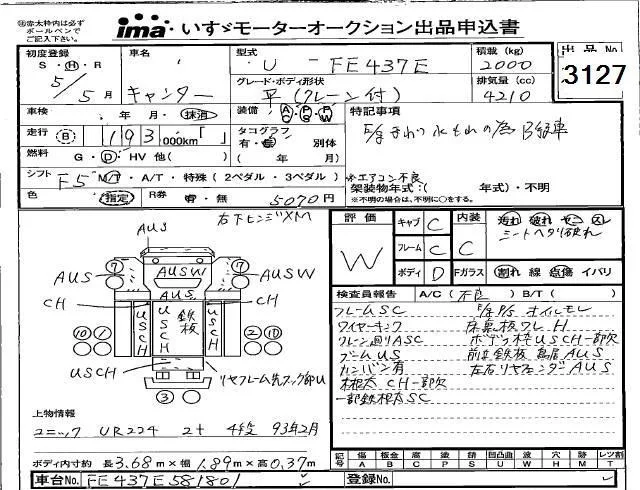 ㊟赤太枠内は必ず
ボールペンで
ご記入下さい。
ima いすゞモーターオークション出品申込書
初度登録
S・H・R
5/5月
車名
キャンター
型式
U FE437E
グレード・ボディ形状
平(クレーン付)
積載(kg)
2000
排気量(cc)
4210
出品No
3127
車検
年 月・抹消
装備
A/C P/S P/W
走行
B 193 000km「 」
タコグラフ
有・ 別体
( 年 月)
燃料
G・D・HV 他( )
特記事項
シフト
F5 M/T・A/T・特殊(2ペダル・3ペダル)
※エアコン不良
架装物年式:( 年式)・不明
※不明の場合は、不明に○をする。
色
指定
R券
有・無 5070円
右下ヒンジXM
AUS
AUS
AUSW
AUSW
AUS
CH
CH
USCH
USCH
USCH
鉄板
USCH
⑦ ⑦
⑩ ① ② ⑩
③
評価
W
キャブ C
フレーム C
ボディ D
内装 C
汚れ 破れ ヤニ スレ
シートヘタリ破れ
Fガラス
割れ 線 点傷 イバリ
検査員報告
A/C(不良) B/T( )
フレームSC
オイルモレ
ワイヤーキンク
床鉄板ワレH
クレーン廻りASC
USCH一部欠
ブームUS
AUS
カンバン有
左右リヤフェンダーAUS
根太CH一部欠
一部鉄根太SC
上物情報
ユニック UR224 2t 4段 93年2月
ボディ内寸約 長3.68m×幅1.89m×高0.37m
記号
傷 板金 腐 塗 錆 凹凸曲 波 穴 跡 レツ割
A B C P S U W H M T
車台No. FE437E581801
登録No.